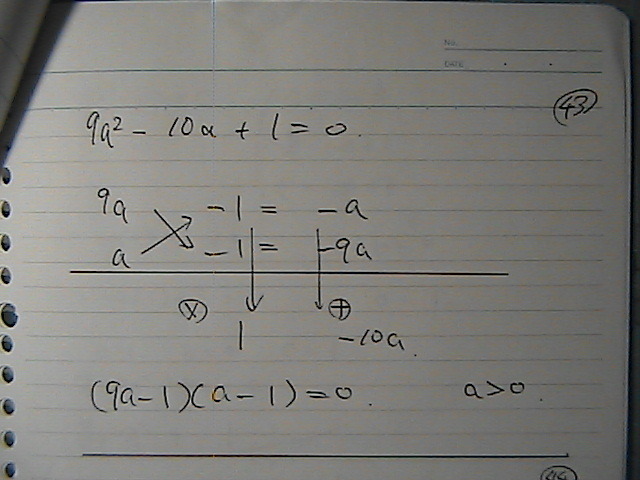 No.
DATE . .
43
9a² - 10a + 1 = 0.
9a -1 = -a
a -1 = -9a
⊗ ⊕
1 -10a.
(9a-1)(a-1)=0. a>0.